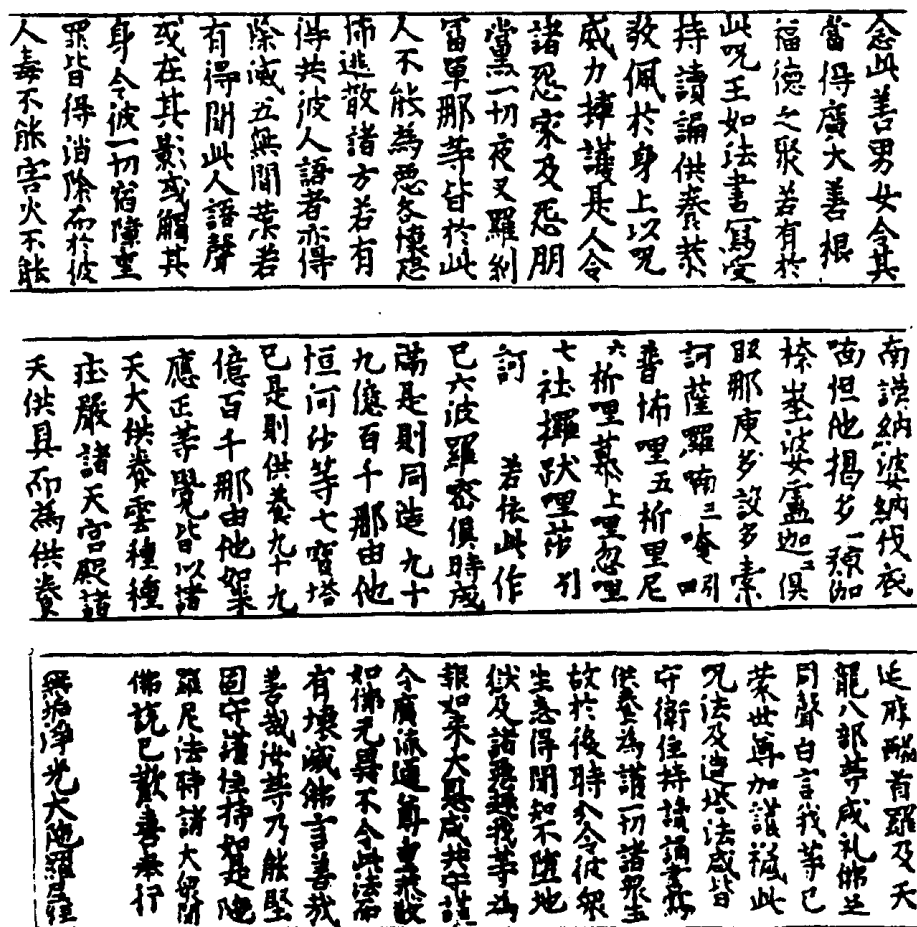 念此善男女令其
當得廣大善根
福德之聚若有於
此咒王如法書寫受
持讀誦供養恭
敬佩於身上以咒
威力擁護是人令
諸惡家及惡朋
黨一切夜叉羅剎
富單那等皆於此
人不能為惡各懷恐
怖逃散諸方若有
得共彼人語者亦得
除滅五無間業若
有得聞此人語聲
或在其影或觸其
身令彼一切宿障重
罪皆得消除而於彼
人毒不能害火不能
南謨納婆納伐底
喃怛他揭多一殑伽
捺地婆盧迦二俱
胝那庾多設多索
訶薩羅喃三唵引
普怖哩五折里尼
六折哩慕上哩忽哩
七社攞跋哩莎引
訶 若依此作
已六波羅密俱時成
滿是則同造九十
九億百千那由他
恒河沙等七寶塔
已是則供養九十九
億百千那由他如來
應正等覺皆以諸
天大供養雲種種
莊嚴諸天宮殿諸
天供具而為供養
延摩醯首羅及天
龍八部等咸礼佛足
同聲白言我等已
蒙世尊加護授此
咒法及造塔法咸皆
守衛住持讀誦書寫
供養為護一切諸眾生
故於後時分令彼眾
生悉得聞知不墮地
獄及諸惡趣我等為
報如來大恩咸共守護
令廣流通尊重恭敬
如佛无異不令此法而
有壞滅佛言善哉
善哉汝等乃能堅
固守護住持如是陀
羅尼法時諸大眾聞
佛說已歡喜奉行
無垢淨光大陀羅尼經